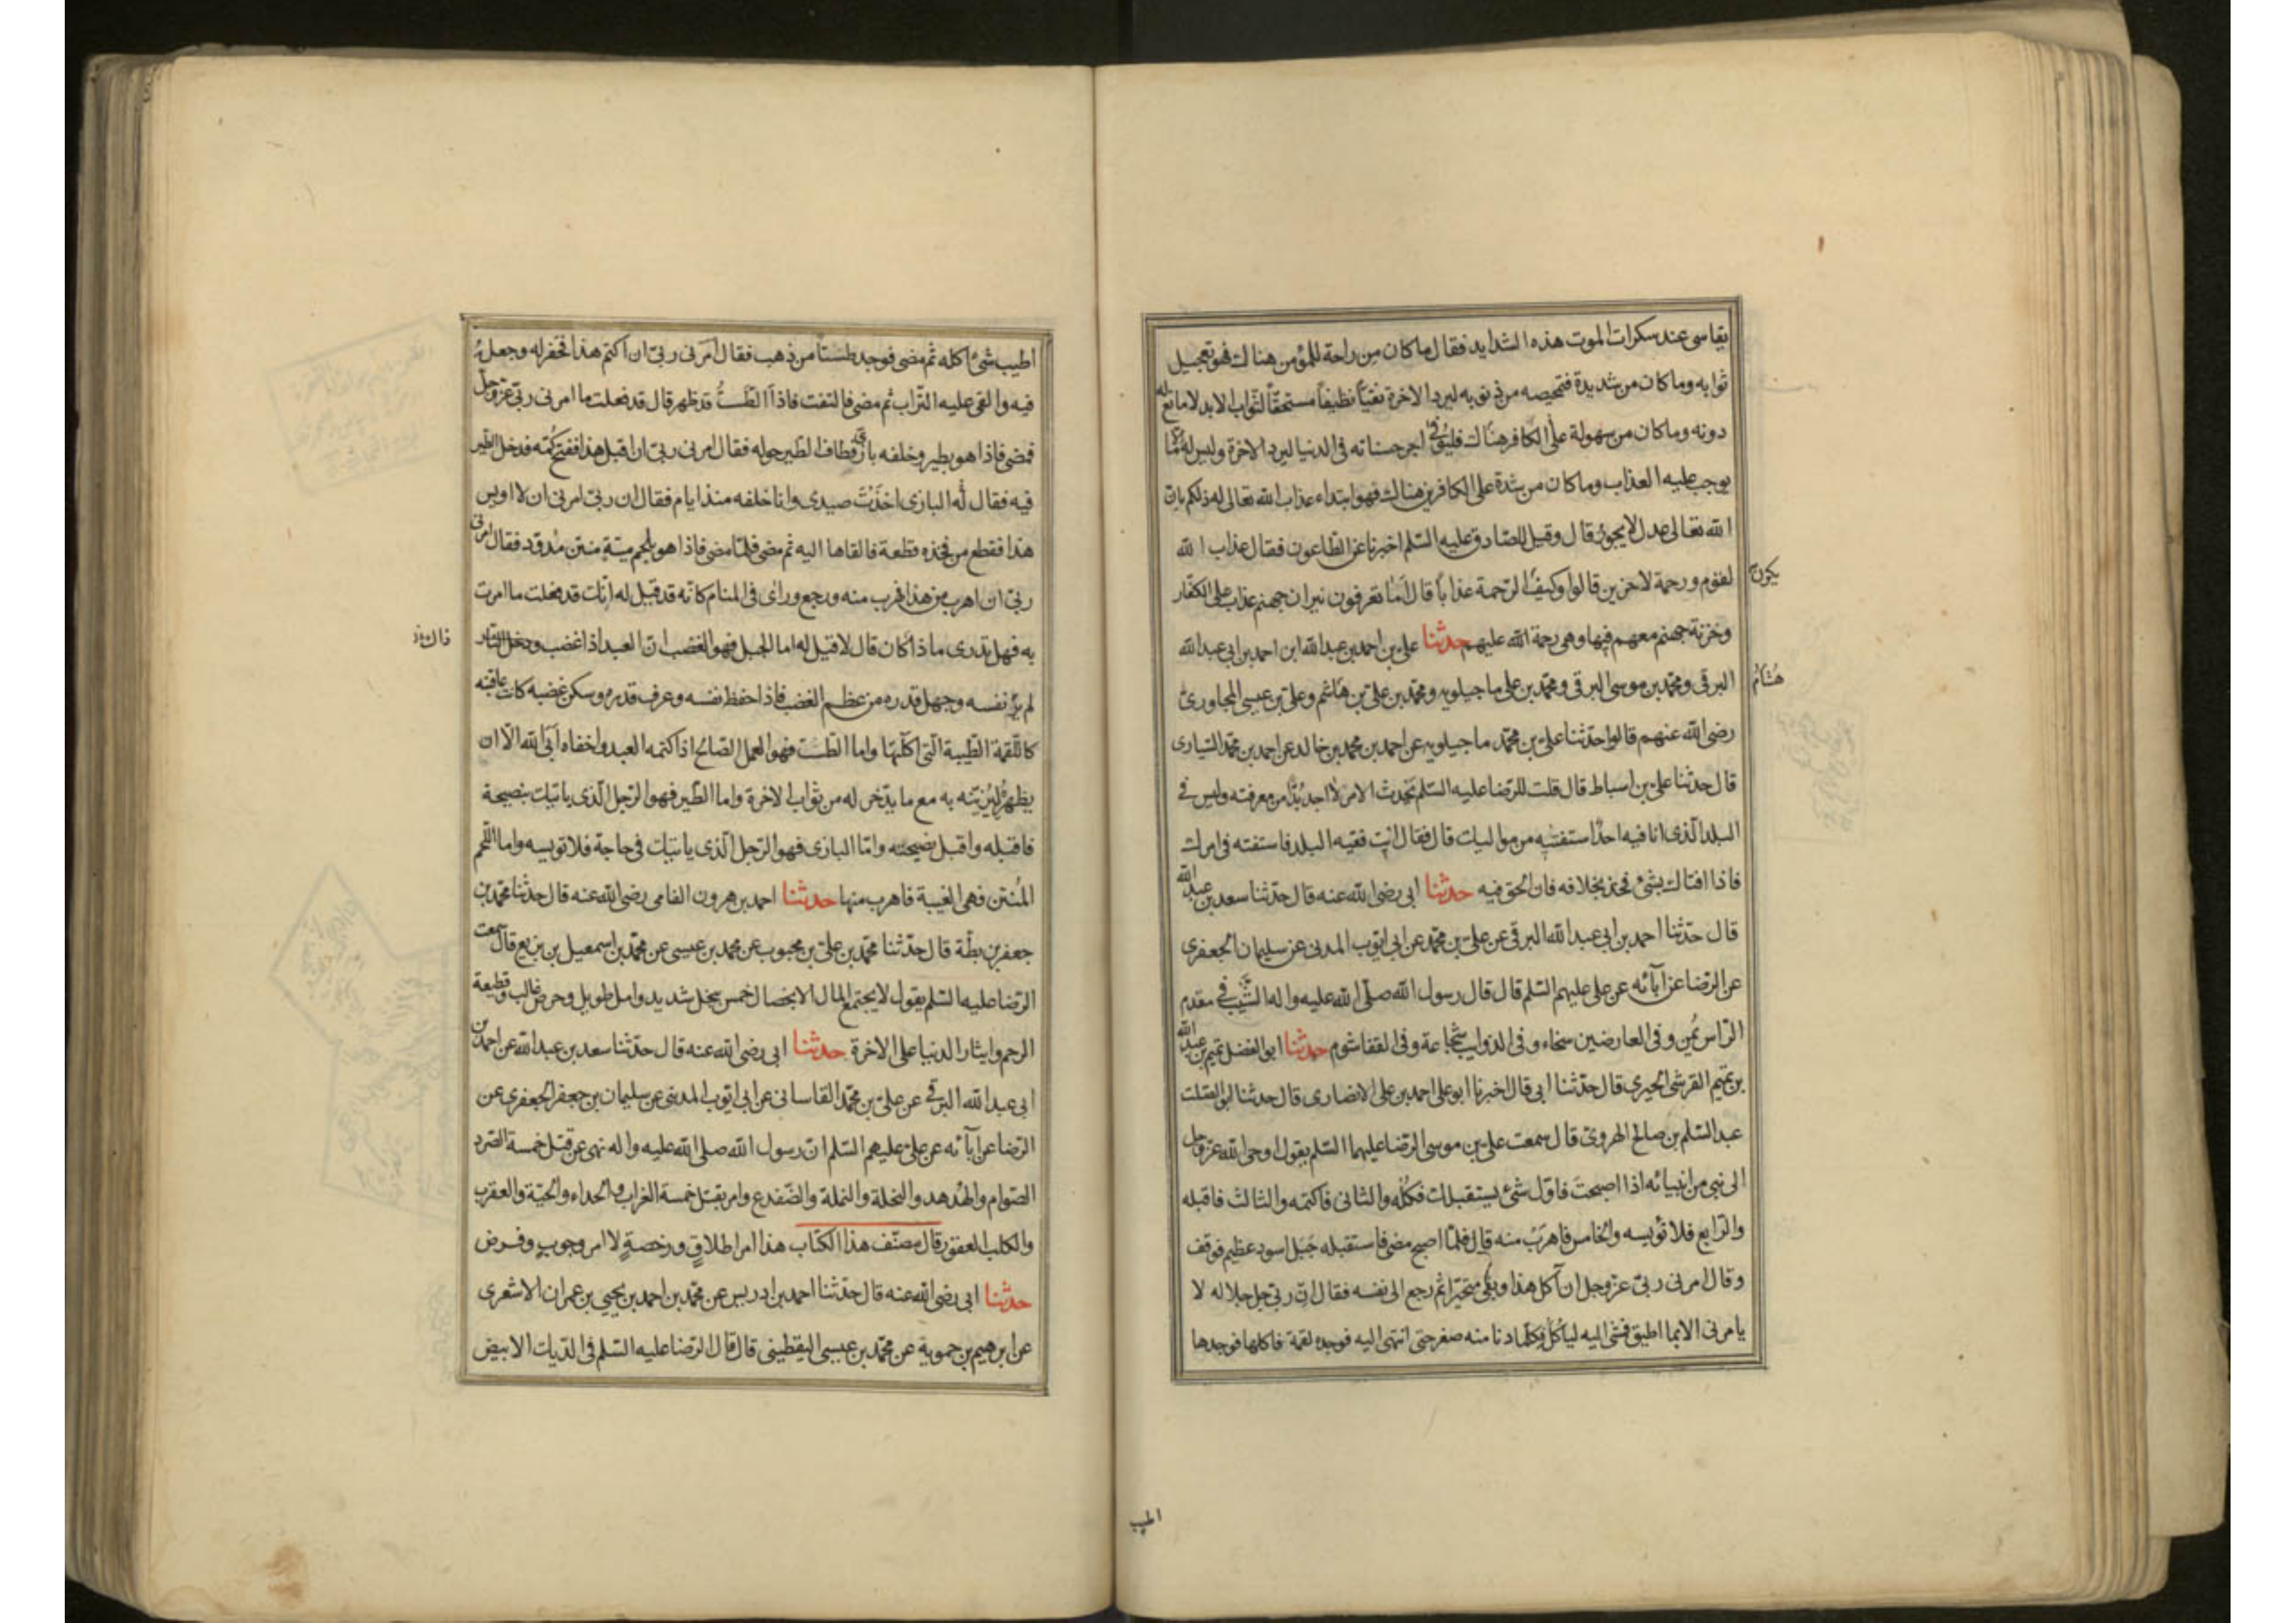 يقاسى عند سكرات الموت هذه الشدايد فقال ما كان من راحة للمؤمن هناك فهو تعجيل
ثوابه وما كان من شديدة فتمحيصه من ذنوبه ليرد الاخرة نقيّاً نظيفاً مستحقّاً لثواب الابد لا مانع له
دونه وما كان من سهولة على الكافر هناك فليوفى اجر حسناته فى الدنيا ليرد الاخرة وليس له الّا ما
يوجب عليه العذاب وما كان من شدة على الكافرين هناك فهو ابتداء عذاب الله تعالى له ذلكم بان
الله تعالى عدل لا يجور قال وقيل للصّادق عليه السّلم اخبرنا عن الطاعون فقال عذاب الله
لقوم ورحمة لاخرين قالوا وكيف الرّحمة عذاباً قال اَمَا تعرفون نيران جهنم عذاب على الكفّار
يكون
وخزنة جهنم معهم فيها وهى رحمة الله عليهم حدثنا على بن احمد بن عبدالله ابن احمد بن ابى عبدالله
البرقى ومحمّد بن موسى البرقى ومحمّد بن على ماجيلويه ومحمّد بن علىّ بن هاشم وعلىّ بن عيسى المجاورىّ
هشام
رضى الله عنهم قالوا حدّثنا علىّ بن محمّد ماجيلويه عن احمد بن محمد بن خالد عن احمد بن محمّد السّيارى
قال حدّثنا علىّ بن اسباط قال قلت للرّضا عليه السّلم يَحدث الامر لا اجد بُدّاً من معرفته وليس فى
البلد الّذى انا فيه احدٌ استفتيه من مواليك قال فقال ائت فقيه البلد فاستفته فى امرك
فاذا افتاك بشئ فخذ بخلافه فان الحق فيه حدثنا ابى رضى الله عنه قال حدّثنا سعد بن عبدالله
قال حدّثنا احمد بن ابى عبد الله البرقى عن علىّ بن محمّد عن ابى ايّوب المدنى عن سليمان الجعفرى
عن الرّضا عن آبائه عن على عليهم السّلم قال قال رسول الله صلّى الله عليه واله الشّيب فى مقدم
الرّاس يُمن وفى العارضين سخاء وفى الذوايب شجاعة وفى القفا شوم حدثنا ابو الفضل تميم بن عبدالله
بن تميم القرشى الحيرى قال حدّثنا ابى قال اخبرنا ابو على احمد بن على الانصارى قال حدثنا ابو الصّلت
عبد السّلم بن صالح الهروىّ قال سمعت علىّ بن موسى الرّضا عليهما السّلم يقول اوحى الله عزّ وجل
الى نبى من انبيائه اذا اصبحتَ فاوّل شئ يستقبلك فكُله والثانى فاكتمه والثالث فاقبله
والرّابع فلا تؤيسه والخامس فاهرَبْ منه قال فلمّا اصبح مضى فاستقبله جَبَل اسود عظيم فوقف
وقال امرنى ربّى عزّ وجل ان آكل هذا وبقى متحيّراً ثم رجع الى نفسه فقال انّ ربّى جل جلاله لا
يامرنى الا بما اطيق فمشى اليه لياكُل فكلّما دنا منه صغر حتى انتهى اليه فوجده لقمة فاكلها فوجدها
اطيب
اطيب شئ اكله ثم مضى فوجد طستاً من ذهب فقال امرنى ربّى ان اكتم هذا فحفر له وجعله
فيه والقى عليه التّراب ثم مضى فالتفت فاذا الطّستُ قد ظهر قال قد فعلت ما امرنى ربّى عزّ وجلّ
فمضى فاذا هو بطير وخلفه بازى فطاف الطّير حوله فقال امرنى ربّى ان اقبل هذا ففتح كُمّه فدخل الطّير
فيه فقال له البازى اخذتَ صيدى وانا خلفه منذ ايام فقال ان ربّى امرنى ان لا اويس
هذا فقطع من فخذه قطعة فالقاها اليه ثم مضى فلمّا مضى فاذا هو بلحم ميتة منتن مُدوّد فقال امرنى
ربّى ان اهرب من هذا فهرب منه ورجع وراى فى المنام كانّه قد قيل له انّك قد فعلت ما امرت
به فهل تدرى ماذا كان قال لا قيل له اما الجبل فهو الغضب انّ العبد اذا غضب
لم ير نفسه وجهل قدره من عظم الغضب فاذا حفظ نفسه وعرف قدره وسكن غضبه كانت عاقبته
كاللّقمة الطّيبة الّتى اكلتها واما الطّست فهو العمل الصّالح اذا كتمه العبد واخفاه اَبَى الله الّا ان
يظهرهُ ليُزيّنه به مع ما يدّخر له من ثواب الاخرة واما الطّير فهو الرّجل الّذى ياتيك بنصيحة
فاقبله واقبل نصيحته وامّا البازى فهو الرّجل الّذى ياتيك فى حاجة فلا تويسه واما اللّحم
المُنتن فهى الغيبة فاهرب منها حدثنا احمد بن هرون الفامى رضى الله عنه قال حدّثنا محمّد بن
جعفر بن بطّة قال حدّثنا محمّد بن علىّ بن محبوب عن محمد بن عيسى عن محمّد بن اسمعيل بن بزيع قال سمعت
الرّضا عليه السّلم يقول لا يجتمع المال الا بخصال خمس ببخل شديد وامل طويل وحرص غالب وقطيعة
الرحم وايثار الدنيا على الاخرة حدثنا ابى رضى الله عنه قال حدّثنا سعد بن عبدالله عن احمد بن
ابى عبدالله البرقى عن علىّ بن محمّد القاسانى عن ابى ايّوب المدينى عن سليمان بن جعفر الجعفرى عن
الرّضا عن آبائه عن علىّ عليهم السّلم انّ رسول الله صلى الله عليه واله نهى عن قتل خمسة الصّرد
الصّوام والهُدهد والنحلة والنملة والضّفدع وامر بقتل خمسة الغراب والحداء والحيّة والعقرب
والكلب العقور قال مصنّف هذا الكتاب هذا امر اطلاقٍ ورخصةٍ لا امر وجوبٍ وفرض
حدثنا ابى رضى الله عنه قال حدّثنا احمد بن ادريس عن محمّد بن احمد بن يحيى بن عمران الاشعرى
عن ابرهيم بن حمويه عن محمّد بن عيسى اليقطينى قال قال الرّضا عليه السّلم فى الدّيك الابيض